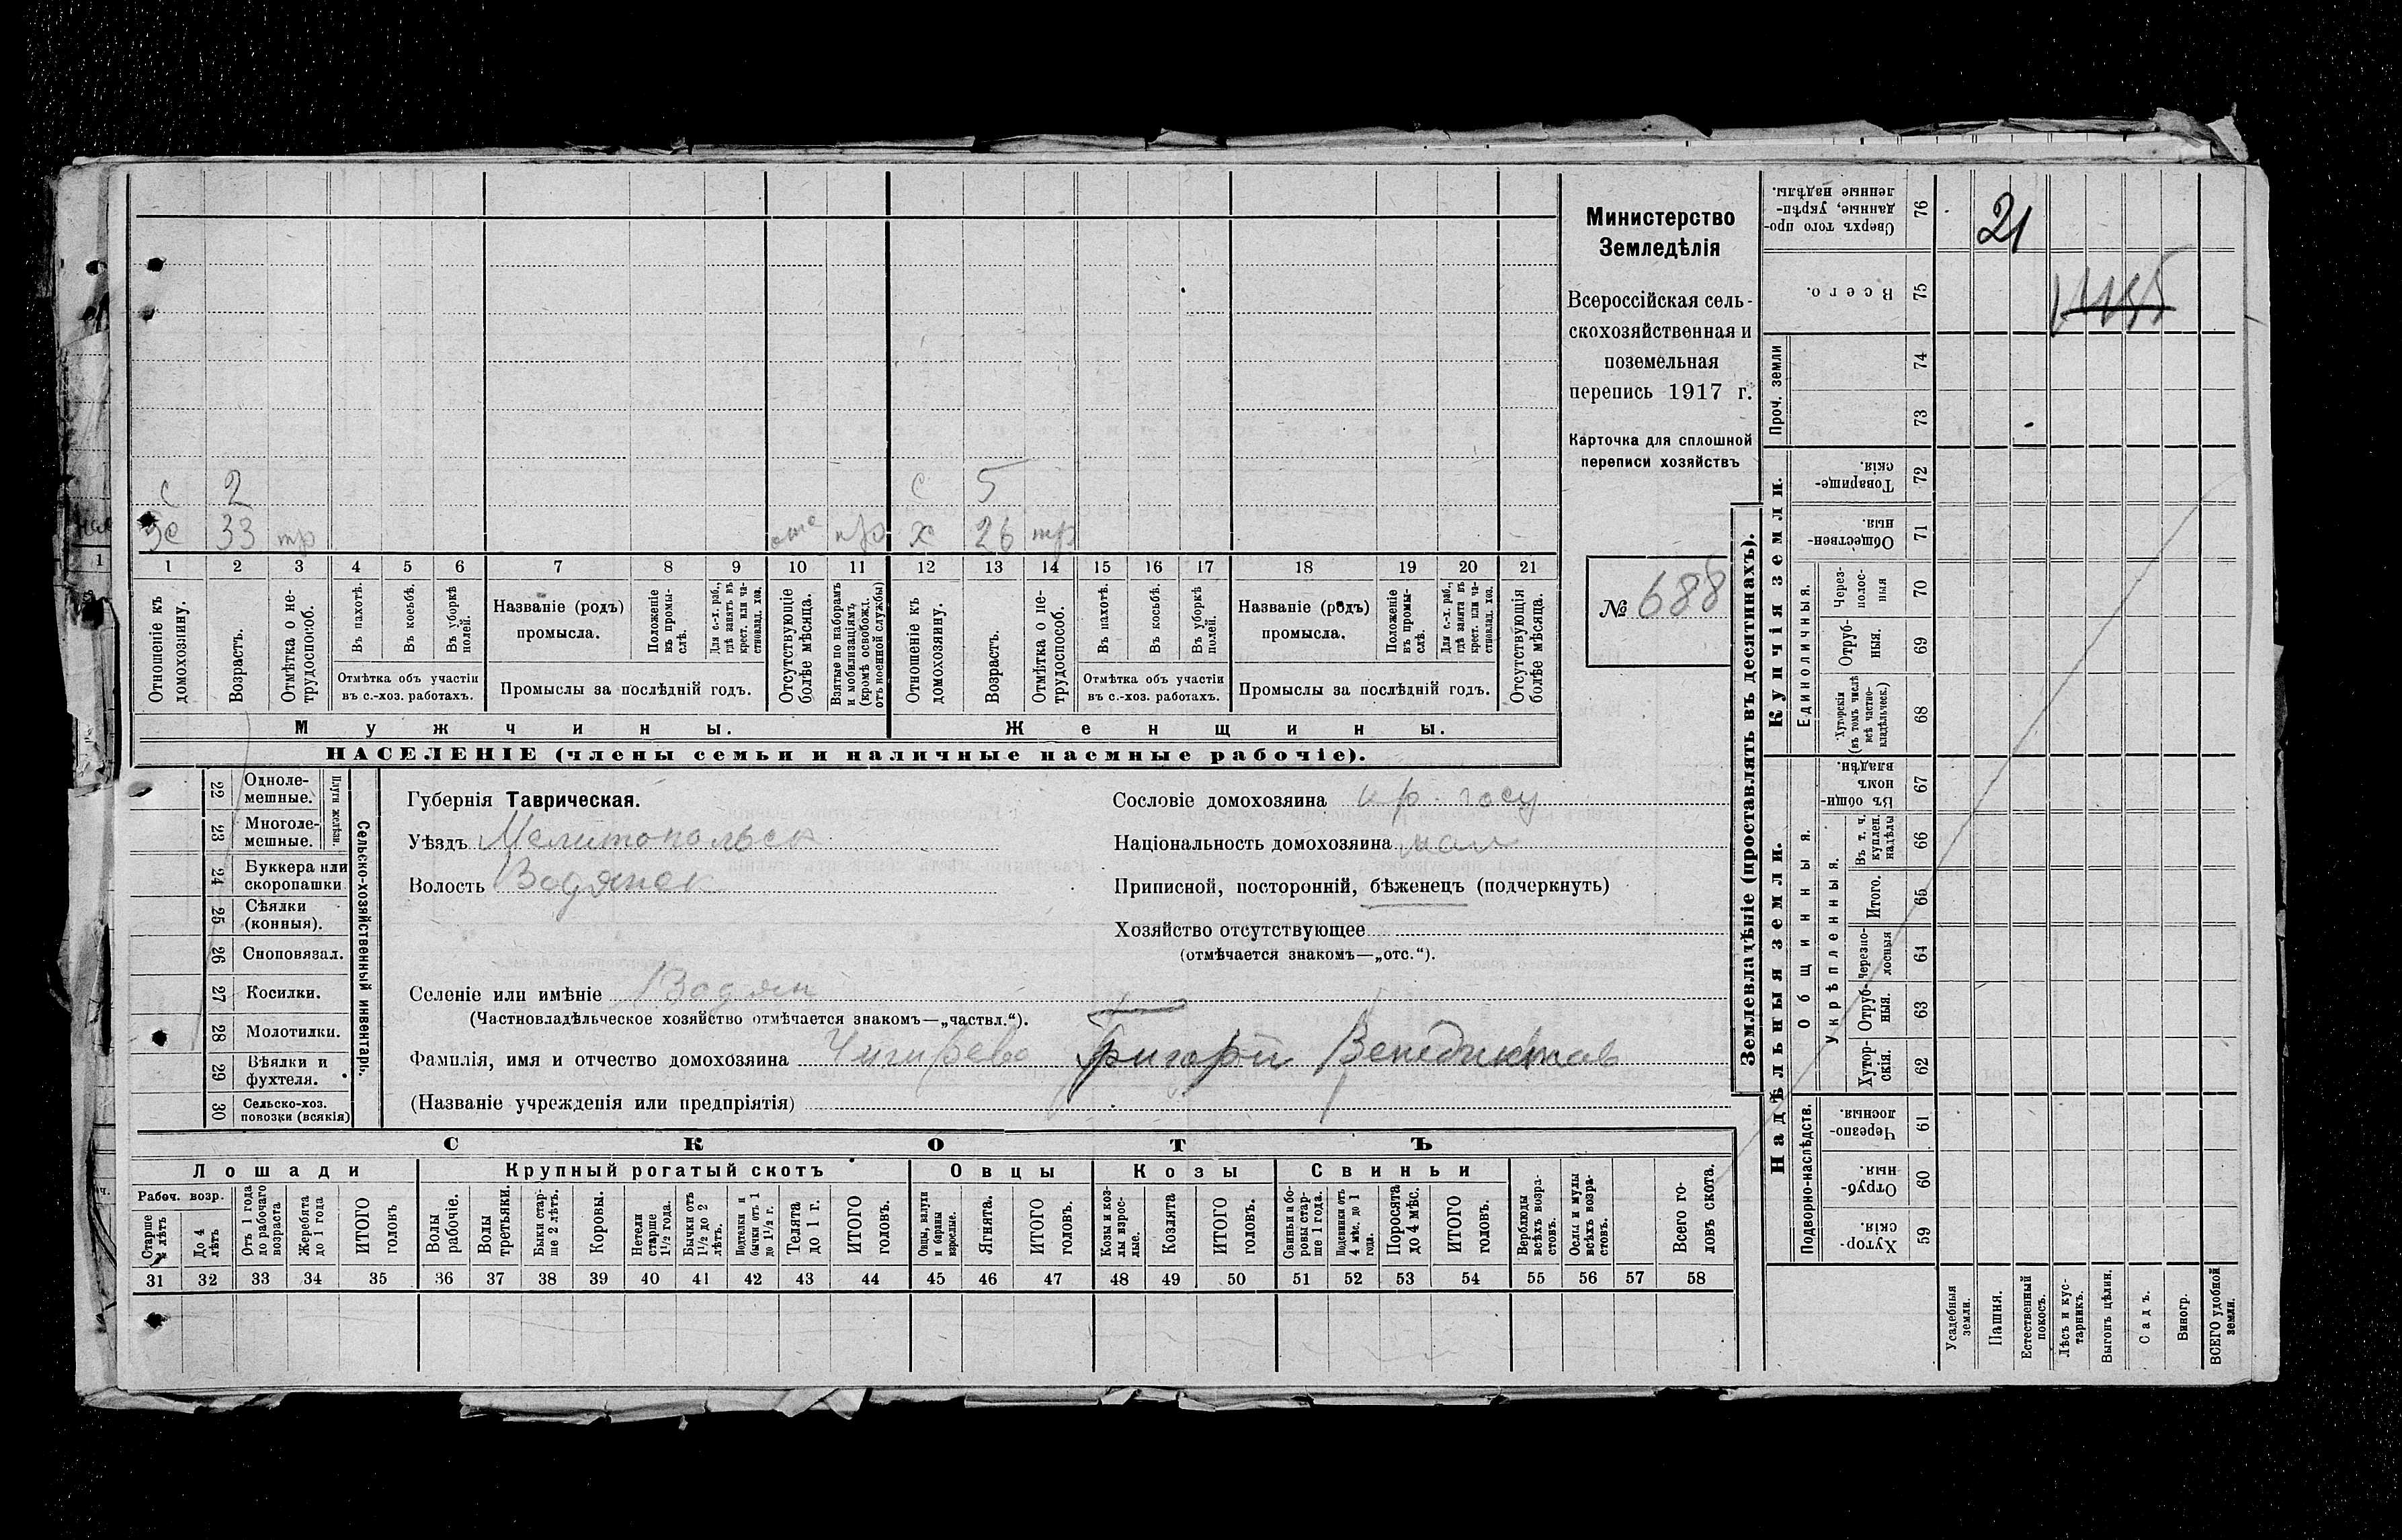 с 2 с 5
33 тр отс х 26 тр
1 2 3 4 5 6 7 8 9 10 11 12 13 14 15 16 17 18 19 20 21
Отношеніе къ домохозяину.
Возрастъ.
Отмѣтка о не-трудоспособ.
Въ пахотѣ.
Въ косьбѣ.
Въ уборкѣ полей.
Отмѣтка объ участіи
въ с.-хоз. работахъ.
Названіе (родъ)
промысла.
Положеніе въ промы-слѣ.
Для с.-х. раб., гдѣ занятъ въ крест. или ча-стновлад. хоз.
Промыслы за послѣдній годъ.
Отсутствующіе болѣе мѣсяца.
Взятые по наборамъ и мобилизаціямъ (кромѣ освобожд. отъ военной службы)
Отношеніе къ домохозяину.
Возрастъ.
Отмѣтка о не-трудоспособ.
Въ пахотѣ.
Въ косьбѣ.
Въ уборкѣ полей.
Отмѣтка объ участіи
въ с.-хоз. работахъ.
Названіе (родъ)
промысла.
Положеніе въ промы-слѣ.
Для с.-х. раб., гдѣ занята въ крест. или ча-стновлад. хоз.
Промыслы за послѣдній годъ.
Отсутствующія болѣе мѣсяца.
Мужчины. Женщины.
НАСЕЛЕНІЕ (члены семьи и наличные наемные рабочіе).
Министерство
Земледѣлія
Всероссійская сель-
скохозяйственная и
поземельная
перепись 1917 г.
Карточка для сплошной
переписи хозяйствъ
№ 688
22 Одноле-
мешные.
23 Многоле-
мешные.
Плуги желѣзн.
24 Буккера или
скоропашки
25 Сѣялки
(конныя).
26 Сноповязал.
27 Косилки.
28 Молотилки.
29 Вѣялки и
фухтеля.
30 Сельско-хоз.
повозки (всякія)
Сельско-хозяйственный инвентарь.
Губернія Таврическая.
Уѣздъ Мелитопольск
Волость Водянск
Селеніе или имѣніе Водян
(Частновладѣльческое хозяйство отмѣчается знакомъ—„частвл.“).
Фамилія, имя и отчество домохозяина Григорій Венедиктов
(Названіе учрежденія или предпріятія)
Сословіе домохозяина кр. госу
Національность домохозяина мал
Приписной, посторонній, бѣженецъ (подчеркнуть)
Хозяйство отсутствующее
(отмѣчается знакомъ—„отс.“).
СКОТЪ
Лошади Крупный рогатый скотъ Овцы Козы Свиньи
Рабоч. возр.
Старше 4 лѣтъ
До 4 лѣтъ
Отъ 1 года до рабочаго возраста
Жеребята до 1 года
ИТОГО головъ
Волы рабочіе.
Волы третьяки.
Быки стар-ше 2 лѣтъ.
Коровы.
Нетели старше 1½ года.
Бычки отъ 1½ до 2 лѣтъ.
Подтелки и бычки отъ 1 до 1½ г.
Телята до 1 г.
ИТОГО головъ.
Овцы, валухи и бараны взрослые.
Ягнята.
ИТОГО головъ.
Козы и коз-лы взрос-лые.
Козлята
ИТОГО головъ.
Свиньи и бо-ровы стар-ше 1 года.
Подсвинки отъ 4 мѣс. до 1 года.
Поросята до 4 мѣс.
ИТОГО головъ.
Верблюды всѣхъ возра-стовъ.
Ослы и мулы всѣхъ возра-стовъ.
Всего го-ловъ скота.
31 32 33 34 35 36 37 38 39 40 41 42 43 44 45 46 47 48 49 50 51 52 53 54 55 56 57 58
Землевладѣніе (проставлять въ десятинахъ).
Сверхъ того про-данные, укрѣп-ленные надѣлы. 76 21
Всего. 75
Проч. земли
74
73
Купчія земли.
Товарище-скія. 72
Обществен-ныя. 71
Единоличныя.
Через-полос-ныя 70
Отруб-ныя. 69
Хуторскія (въ томъ числѣ всѣ частно-владѣльческ.) 68
Надѣльныя земли.
Общинныя.
Въ общин-номъ владѣн. 67
Укрѣпленныя.
Въ т. ч. куплен. надѣлы 66
Итого. 65
Черезпо-лосныя 64
Отруб-ныя. 63
Хутор-скія. 62
Подворно-наслѣдств.
Черезпо-лосныя. 61
Отруб-ныя. 60
Хутор-скія. 59
Усадебныя земли.
Пашня.
Естественный покосъ.
Лѣсъ и кус-тарникъ.
Выгонъ цѣлин.
Садъ.
Виногр.
ВСЕГО удобной земли.